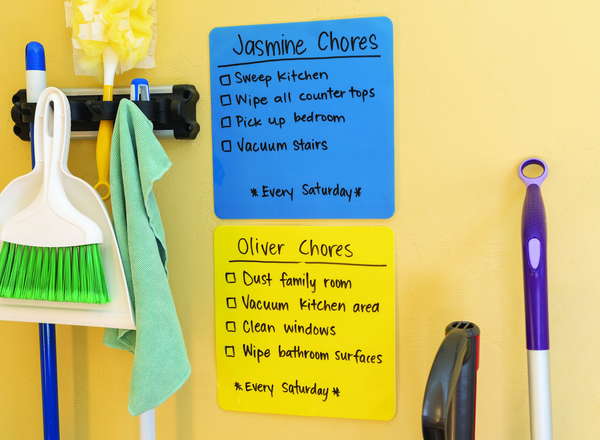 Jasmine Chores
Sweep Kitchen
Wipe all counter tops
Pick up bedroom
Vacuum stairs
*Every Saturday*
Oliver Chores
Dust family room
Vacuum kitchen area
Clean windows
Wipe bathroom surfaces
*Every Saturday*